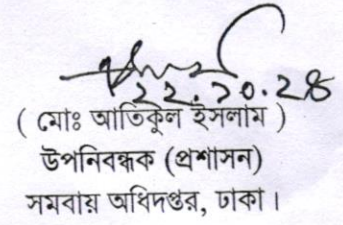 ২২.১০.২৪
( মোঃ আতিকুল ইসলাম )
উপনিবন্ধক (প্রশাসন)
সমবায় অধিদপ্তর, ঢাকা।